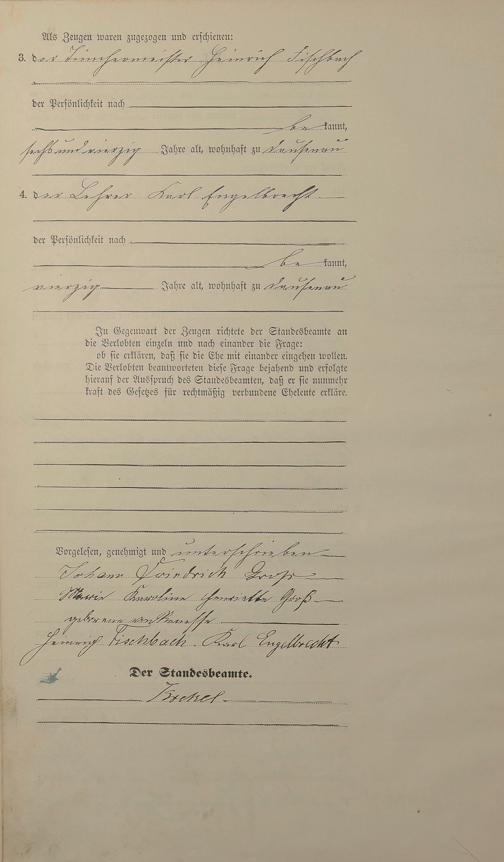 Als Zeugen waren zugezogen und erschienen:
3. der Tünchermeister Heinrich Fischbach
der Persönlichkeit nach
be kannt,
sechsundvierzig Jahre alt, wohnhaft zu Dausenau
4. der Lehrer Karl Engelbrecht
der Persönlichkeit nach
be kannt,
vierzig Jahre alt, wohnhaft zu Dausenau
In Gegenwart der Zeugen richtete der Standesbeamte an
die Verlobten einzeln und nach einander die Frage:
ob sie erklären, daß sie die Ehe mit einander eingehen wollen.
Die Verlobten beantworteten diese Frage bejahend und erfolgte
hierauf der Ausspruch des Standesbeamten, daß er sie nunmehr
kraft des Gesetzes für rechtmäßig verbundene Eheleute erkläre.
Vorgelesen, genehmigt und unterschrieben
Johann Friedrich Groß
Marie Karoline Henriette Groß
geborene
Heinrich Fischbach. Karl Engelbrecht
Der Standesbeamte.